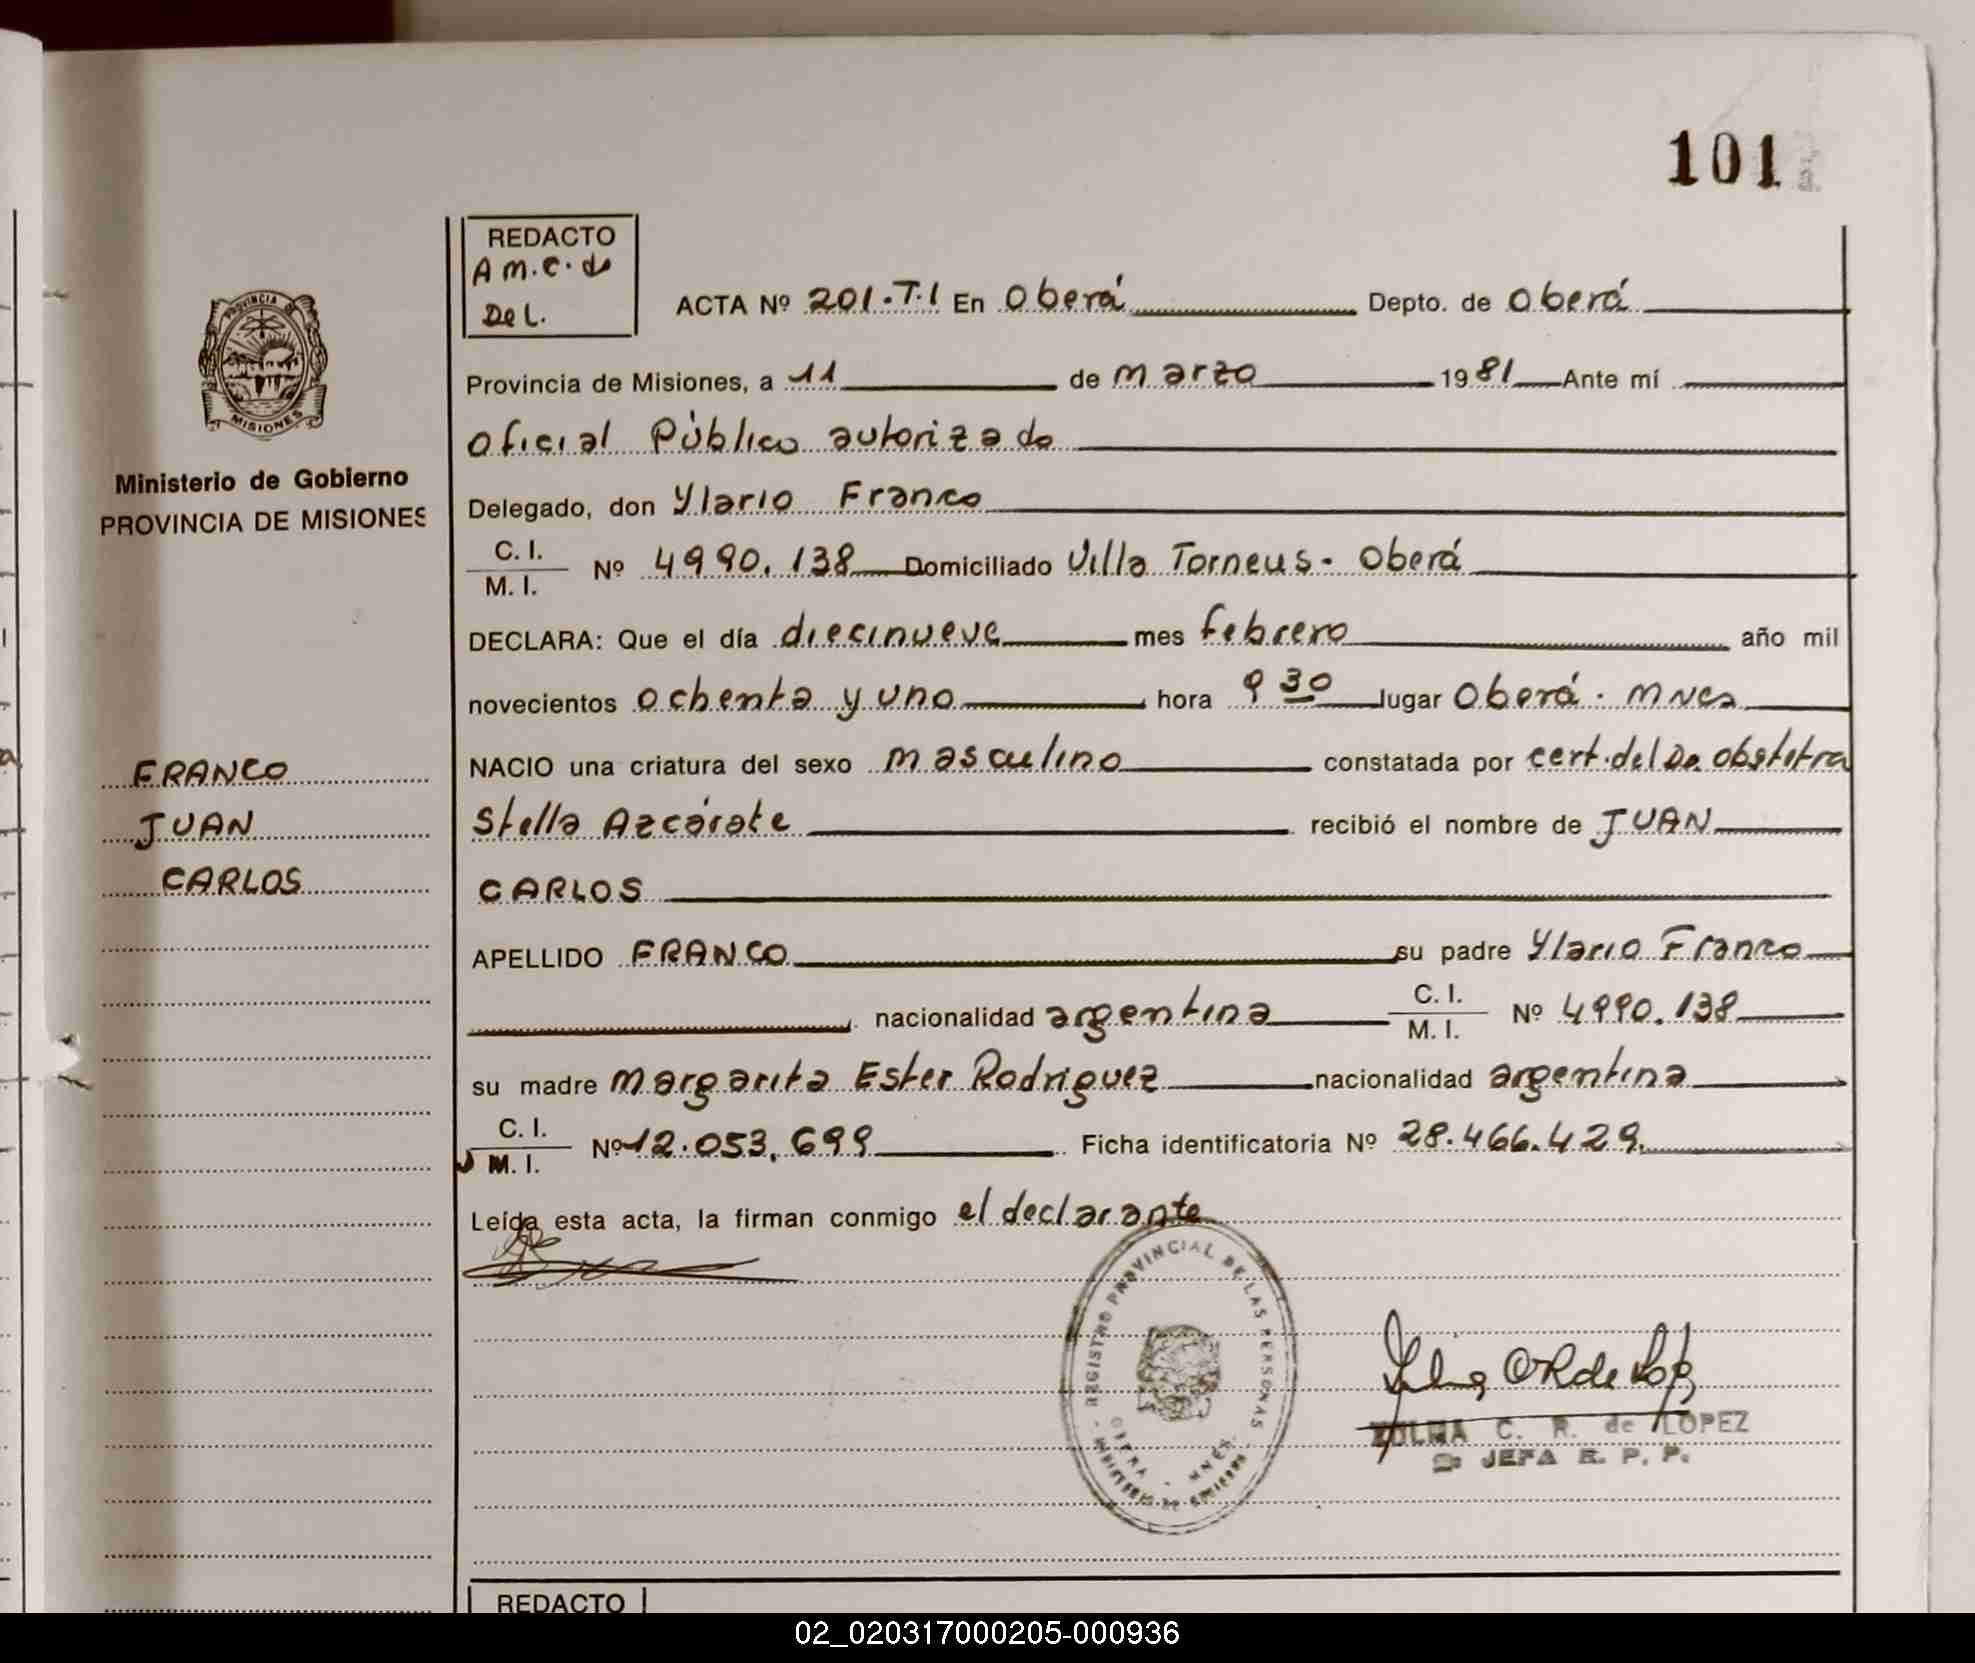 101
REDACTO
A m.c. de
De L.
ACTA Nº 201.T.I En Oberá Depto. de Oberá
Provincia de Misiones, a 11 de marzo 1981 Ante mí
Oficial Público autorizado
Delegado, don Ylario Franco
C. I.
M. I. Nº 4990.138 Domiciliado Villa Torneus - Oberá
DECLARA: Que el día diecinueve mes febrero año mil
novecientos ochenta y uno hora 9 30 lugar Oberá. Mnes
NACIO una criatura del sexo masculino constatada por cert. del Da. obstetra
Stella Azcárate recibió el nombre de JUAN
CARLOS
APELLIDO FRANCO su padre Ylario Franco
nacionalidad argentina C. I.
M. I. Nº 4990.138
su madre Margarita Ester Rodriguez nacionalidad argentina
C. I.
M. I. Nº 12.053.699 Ficha identificatoria Nº 28.466.429.
Leída esta acta, la firman conmigo el declarante
PROVINCIA
MISIONES
Ministerio de Gobierno
PROVINCIA DE MISIONES
FRANCO
JUAN
CARLOS
REGISTRO PROVINCIAL DE LAS PERSONAS
OBERA - MNES.
MINISTERIO DE GOBIERNO
ZULMA C. R. de LOPEZ
JEFA R. P. P.
REDACTO
02_020317000205-000936